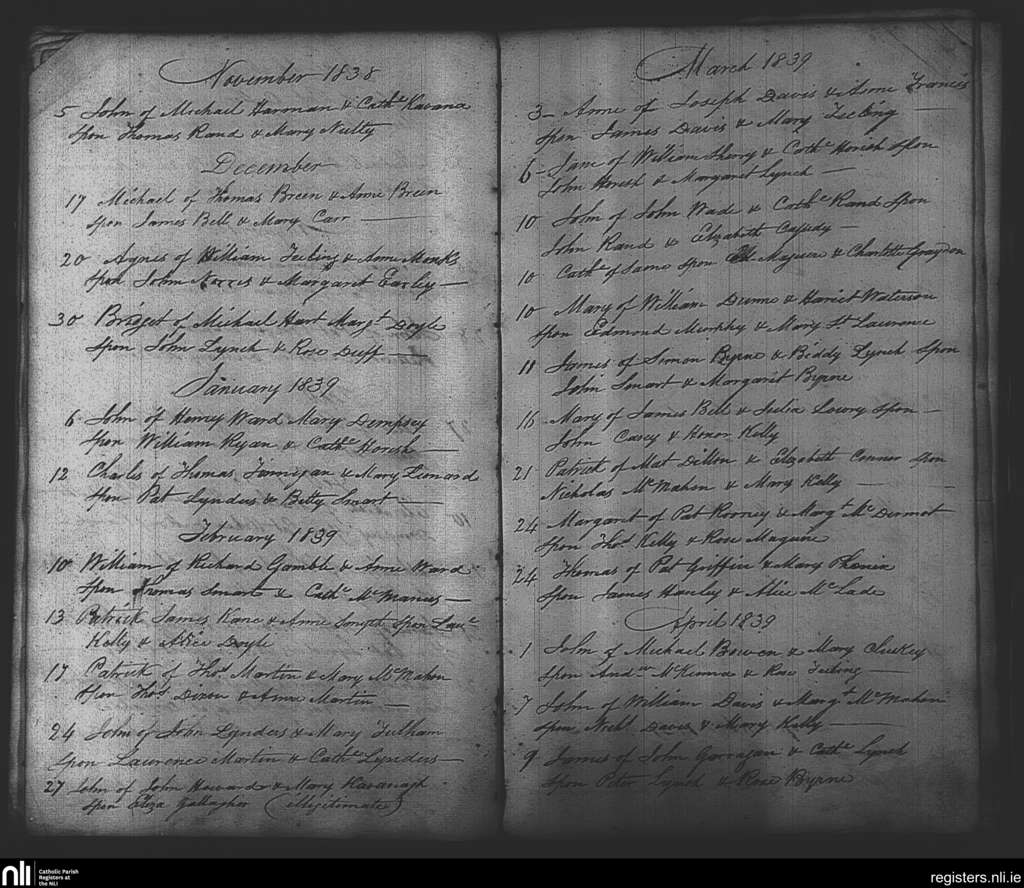 November 1838
5 John of Michael Harman & Cathe Kavana
Spon Thomas Rand & Mary Nulty
December
17 Michael of Thomas Breen & Anne Breen
Spon James Bell & Mary Carr
20 Agnes of William Teeling & Anne Monks
Spon John Norris & Margaret Earley
30 Bridget of Michael Hart Margt Doyle
Spon John Lynch & Rose Duff
January 1839
6 John of Henry Ward Mary Dempsey
Spon William Ryan & Cathe Horish
12 Charles of Thomas Finnigan & Mary Leonard
Spon Pat Lynders & Betty Smart
February 1839
10 William of Richard Gamble & Anne Ward
Spon Thomas Smart & Cathe McManus
13 Patrick James Kane & Anne Spon Lawe
Kelly & Alice Doyle
17 Patrick of Thos Martin & Mary McMahon
Spon Thos Dixon & Anne Martin
24 John of John Lynders & Mary Fulham
Spon Laurence Martin & Cathe Lynders
27 John of John Howard & Mary Kavanagh
Spon Eliza Gallagher (Illegitimate)
March 1839
3 Anne of Joseph Davis & Anne Francis
Spon James Davis & Mary Teeling
6 Jane of William Sherry & Cathe Horish Spon
John Horish & Margaret Lynch
10 John of John Wade & Cathe Rand Spon
John Rand & Elizabeth Casedy
10 Cathe of Same Spon Maguire & Charlotte Graydon
10 Mary of William Dunne & Harriet Waterson
Spon Edmond Murphy & Mary St Laurence
11 James of Simon Byrne & Biddy Lynch Spon
John Smart & Margaret Byrne
16 Mary of James Bell & Julia Lowry Spon
John Casey & Honor Kelly
21 Patrick of Mat Dillon & Elizabeth Connor Spon
Nicholas McMahon & Mary Kelly
24 Margaret of Pat Rooney & Margt McDermot
Spon Thos Kelly & Rose Maguire
24 Thomas of Pat Griffin & Mary
Spon James Hanley & Alice McLade
April 1839
1 John of Michael Bowen & Mary
Spon Andw McKenna & Rose Teeling
7 John of William Davis & Margt McMahon
Spon Nichs Davis & Mary Kelly
9 James of John Garragan & Cathe Lynch
Spon Peter Lynch & Rose Byrne
nli
Catholic Parish
Registers at
the NLI
registers.nli.ie